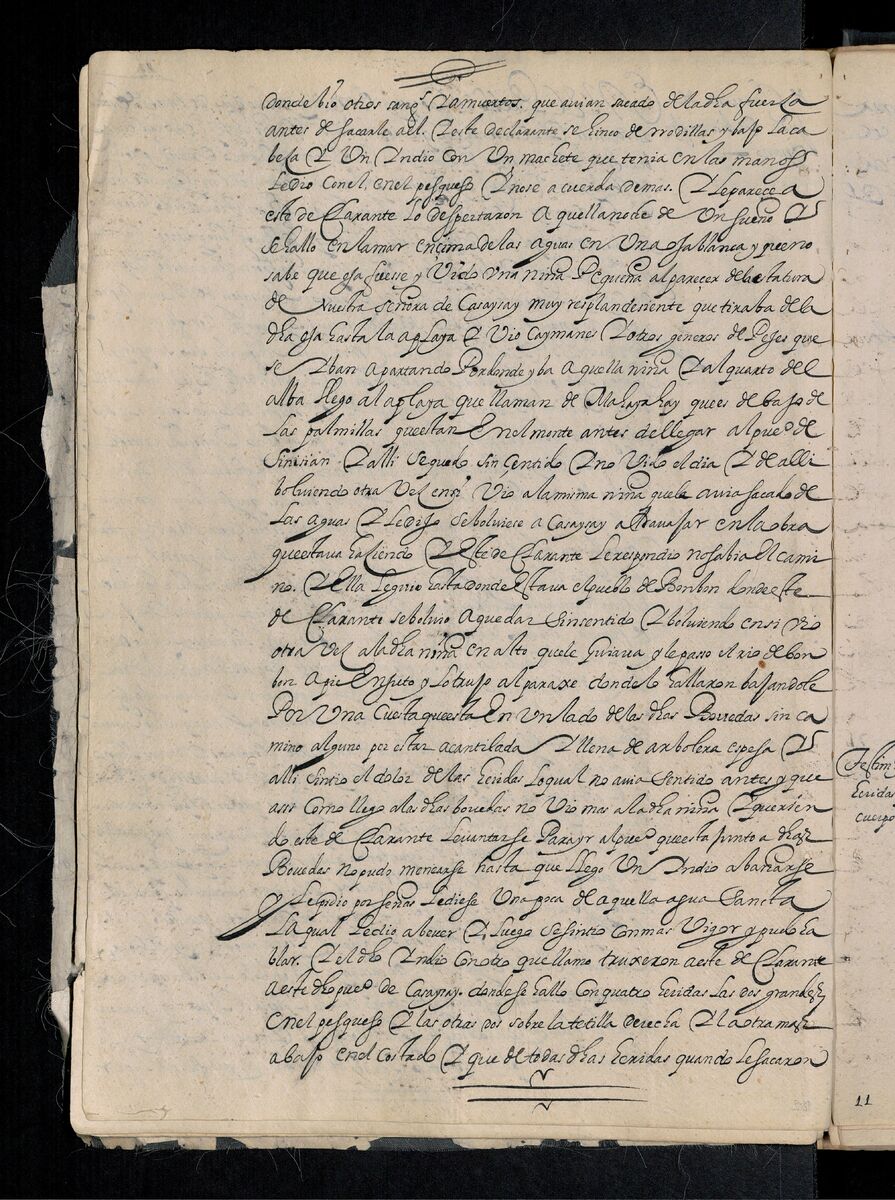 donde bio otros sangs Y a muertos. que avian sacado de la dha fuerza
antes de sacarle a el. Y este declarante se hinco de rrodillas y bajo la ca
beça Y Un Yndio con Un machete que tenia en las manos
le dio con el, en el pesqueso Y no se acuerda de mas. Y le parece a
este declarante lo despertaron aquella noche de Un sueño Y
se hallo en la mar encima de las aguas en Una blanca y que no
sabe que fuesse y Vido vna niña Pequeña al parecer de la estatura
de Nuestra señora de Casaysay muy resplandesiente que tiraba de la
dha hasta la a playa Y Vio Caymanes Y otros generos de Pejes que
se Yban apartando Por donde yba aquella niña Y al quarto del
alba llego a la playa que llaman de que es de bajo de
las palmillas que estan En el monte antes de llegar al pueo de
Sinisian Y alli se quedo sin sentido Y no Vido el dia Y de alli
bolviendo otra Vez en si Vio a la misma niña que le avia sacado de
las aguas Y le dijo se bolviese a Casaysay a travajar en la obra
que estava haciendo Y Este declarante le respondio no sabia El cami
no. Y Ella le guio hasta donde Estava el pueblo de Bonbon donde este
declarante se bolvio a quedar Sin sentido Y bolviendo en si vio
otra Vez a la dha niña en alto que le Guiava y le passo el rio de bon
bon a pie Enjuto y lo trujo al paraxe donde lo hallaron bajandole
Por Una Cuesta que esta En Un lado de las dhas Bovedas sin ca
mino alguno por estar acantilada Y llena de arbolera espesa Y
alli sintio el dolor de las heridas lo qual no avia sentido antes y que
assi como llego a las dhas bovedas no Vio mas a la dha niña Y querien
do este declarante levantarse Para yr al pueo que esta junto a dhas
Bovedas no pudo menearse hasta que llego Un Yndio a bañarse
y le pidio por señas le diese Una poca de aquella agua Sancta
la qual le dio a bever Y luego se sintio con mas Vigor y pudo ha
blar. Y el dho Yndio con otro que llamo truxeron a este declarante
a este dho pueo de Casaysay. donde se hallo con quatro heridas las dos grandes
en el pesqueso Y las otras dos sobre la tetilla derecha Y la otra mas
abajo en el Costado Y que de todas dhas heridas quando le sacaron
heridas
cuerpo
11